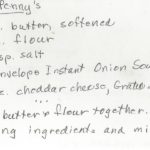 Penny's
. butter, softened
. flour
sp. salt
nvelope Instant Onion Sou
z. cheddar cheese, Grated
...
butter & flour together.
ng ingredients and mi